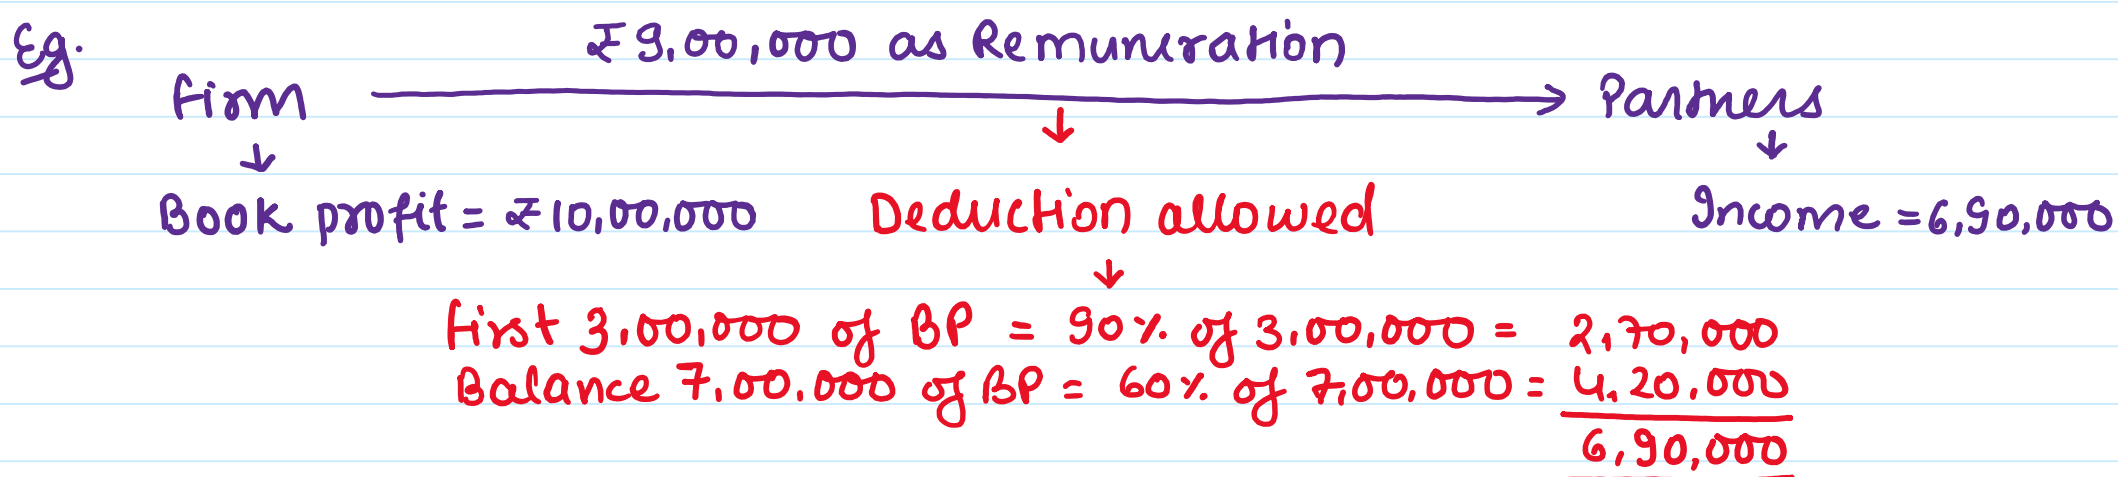 Eg.
₹9,00,000 as Remuneration
Firm → Partners
↓ ↓ ↓
Book profit = ₹10,00,000 Deduction allowed Income = 6,90,000
↓
First 3,00,000 of BP = 90% of 3,00,000 = 2,70,000
Balance 7,00,000 of BP = 60% of 7,00,000 = 4,20,000
6,90,000